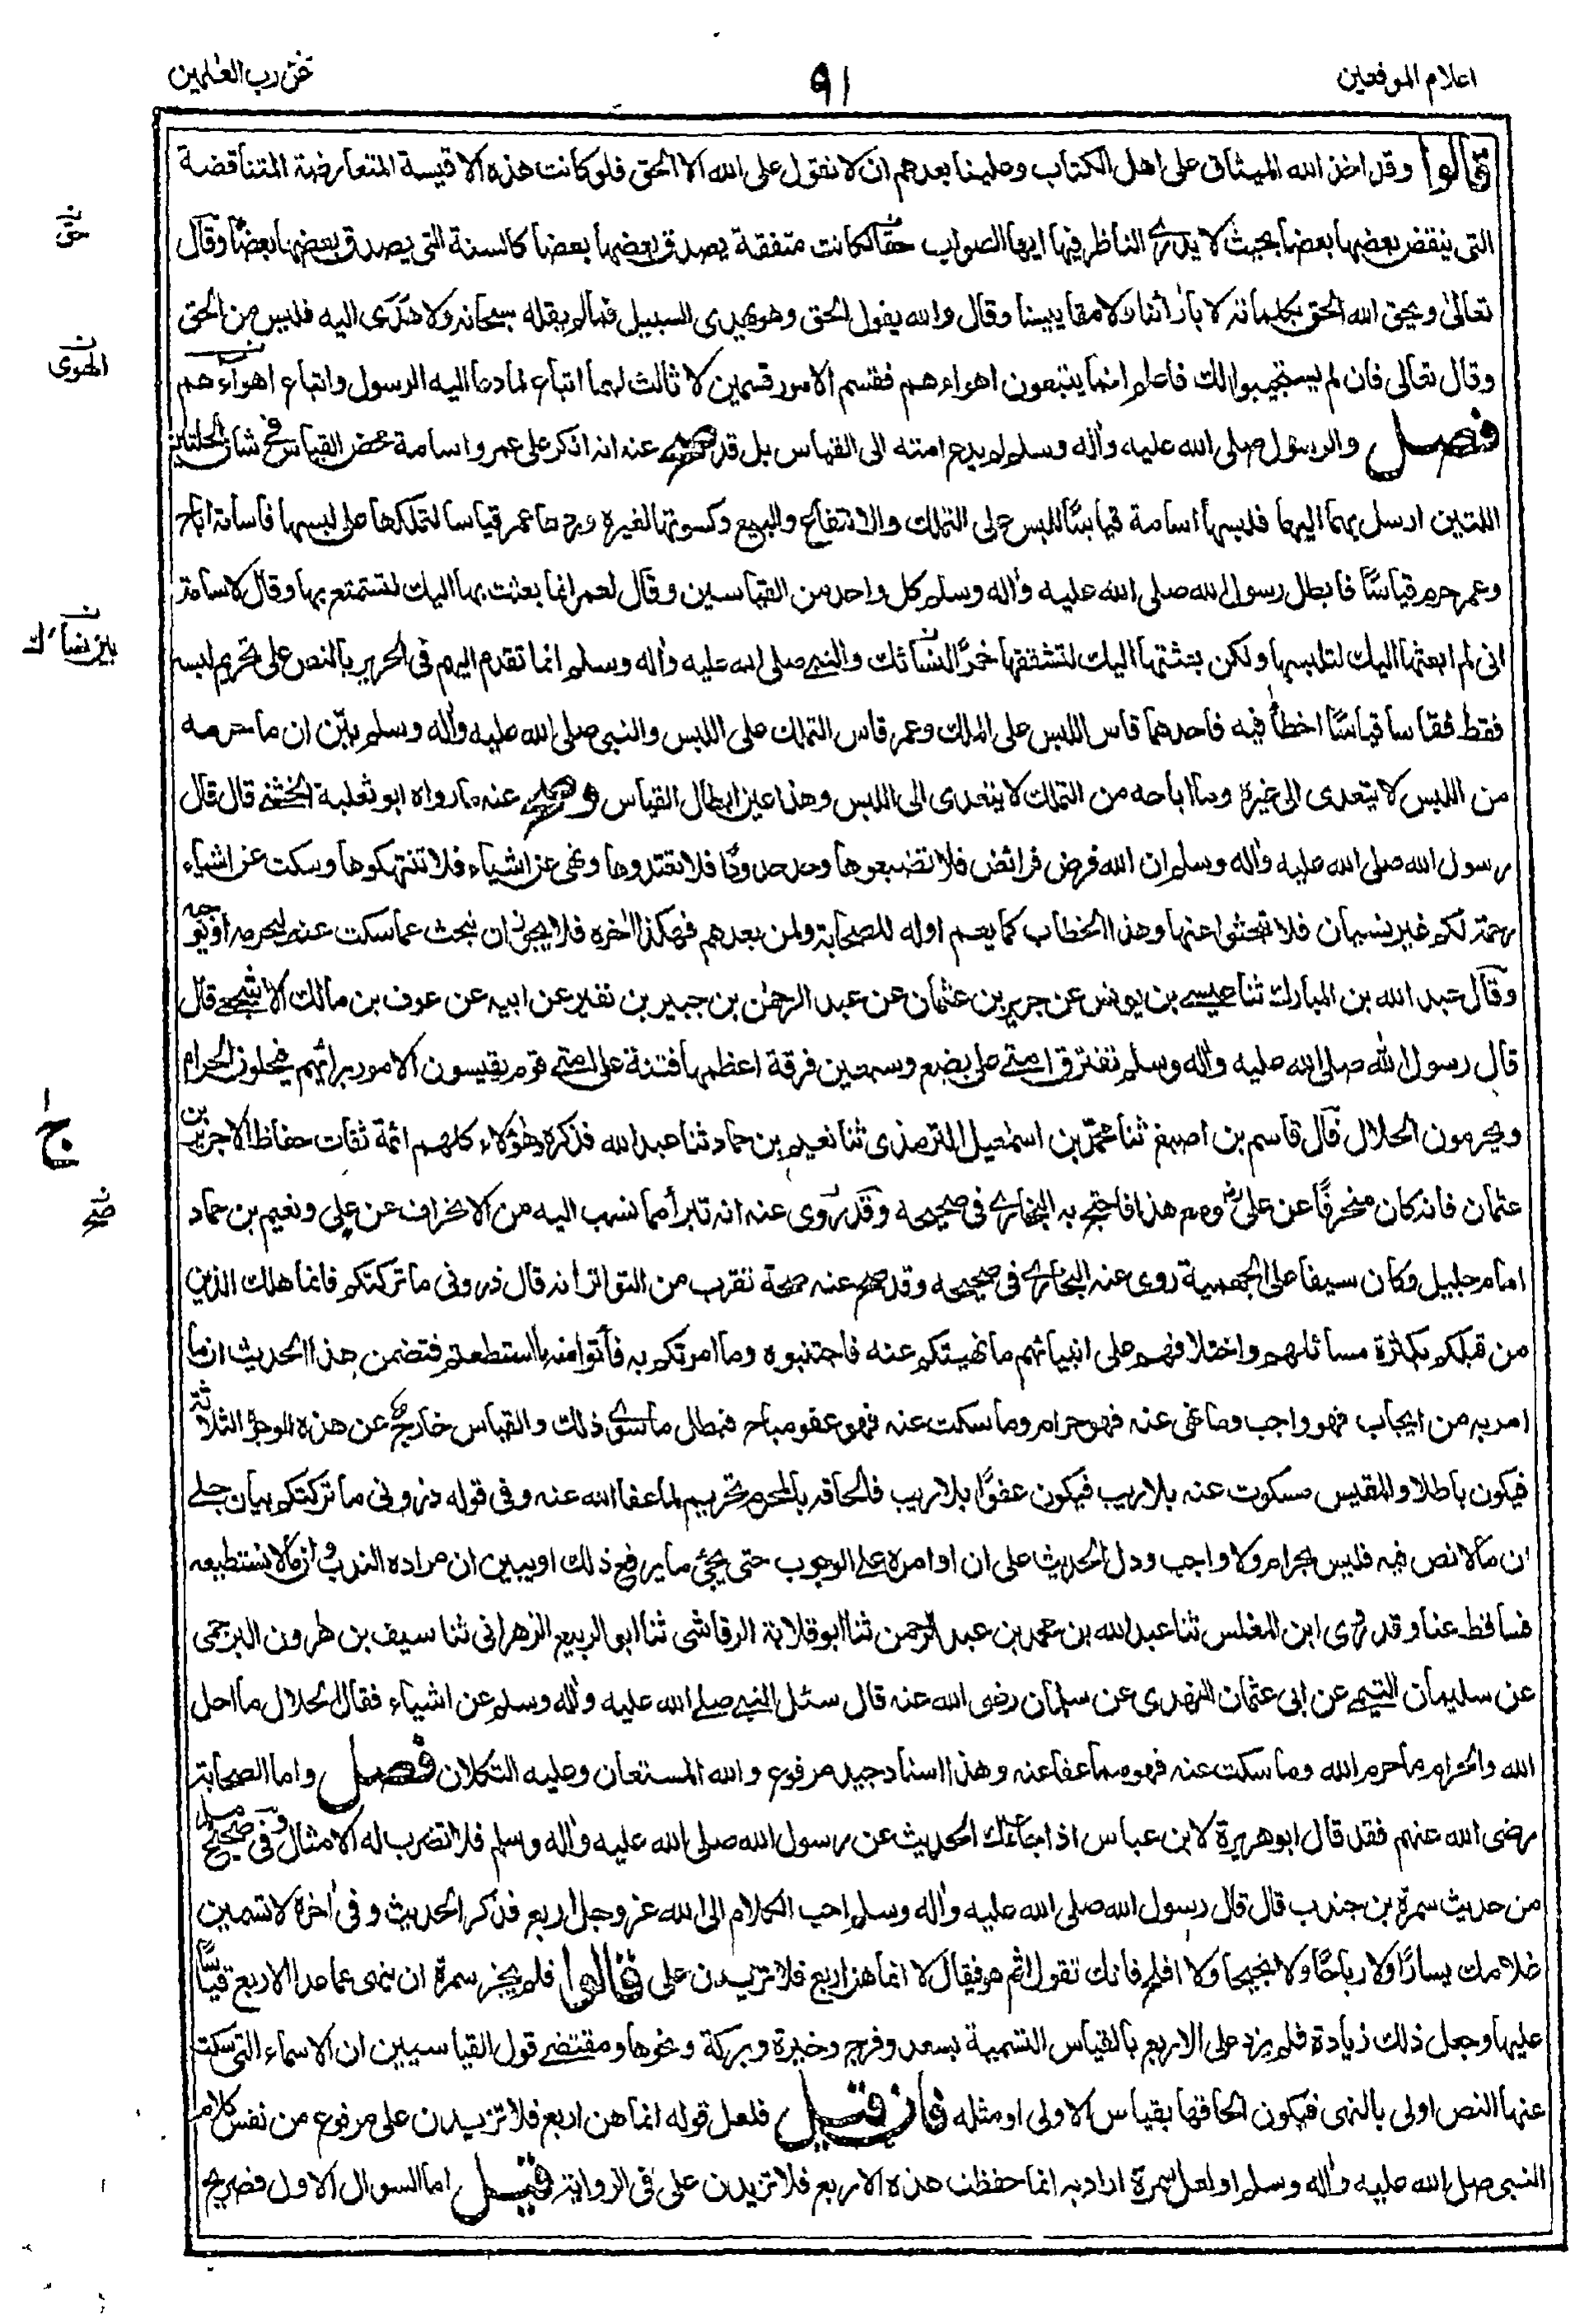 اعلام الموقعين
٩١
عن رب العٰلمين
قالوا وقد اخذ الله الميثاق على اهل الكتاب وعلينا بعدهم ان لا نقول على الله الا الحق فلو كانت هذه الاقيسة المتعارضة المتناقضة
التى ينقض بعضها بعضا بحيث لا يدرى الناظر فيها ايها الصواب حقا لكانت متفقة يصدق بعضها بعضا كالسنة التى يصدق بعضها بعضاً وقال
تعالىٰ ويحق الله الحق بكلماته لا بآرائنا ولا مقاييسنا وقال والله يقول الحق وهو يهدى السبيل فما لم يقله سبحانه ولا هدى اليه فليس من الحق
وقال تعالى فان لم يستجيبوا لك فاعلم انما يتبعون اهواءهم فقسم الامور قسمين لا ثالث لهما اتباع لما دعا اليه الرسول واتباع اهواءهم
فصل والرسول صلى الله عليه واٰله وسلم لم يدع امته الى القياس بل قد صح عنه انه انكر على عمر واسامة محض القياس فى شان الحلتين
اللتين ارسل بهما اليهما فلبسها اسامة قياسًا للبس على التملك والانتفاع والبيع وكسوتها لغيره وردها عمر قياسا لتملكها على لبسها فاسامة اباح
وعمر حرم قياسًا فابطل رسول الله صلى الله عليه واٰله وسلم كل واحد من القياسين وقال لعمر انما بعثت بها اليك لتستمتع بها وقال لاسامة
انى لم ابعثها اليك لتلبسها ولكن بعثتها اليك لتشققها خمرًا لنسائك والنبى صلى الله عليه واٰله وسلم انما تقدم اليهم فى الحرير بالنص على تحريم لبسه
فقط فقاسا قياسًا اخطأ فيه فاحدهما قاس اللبس على الملك وعمر قاس التملك على اللبس والنبى صلى الله عليه واٰله وسلم بيّن ان ما حرمه
من اللبس لا يتعدى الى غيره وما اباحه من التملك لا يتعدى الى اللبس وهذا عين ابطال القياس وصح عنه ما رواه ابو ثعلبة الخشنى قال قال
رسول الله صلى الله عليه واٰله وسلم ان الله فرض فرائض فلا تضيعوها وحد حدودًا فلا تعتدوها ونهى عن اشياء فلا تنتهكوها وسكت عن اشياء
رحمة لكم غير نسيان فلا تبحثوا عنها وهذا الخطاب كما يعم اوله للصحابة ولمن بعدهم فهكذا اٰخره فلا يجوز ان نبحث عما سكت عنه ليحرمه او يوجبه
وقال عبد الله بن المبارك ثنا عيسى بن يونس عن جرير بن عثمان عن عبد الرحمٰن بن جبير بن نفير عن ابيه عن عوف بن مالك الاشجعى قال
قال رسول الله صلى الله عليه واٰله وسلم تفترق امتى على بضع وسبعين فرقة اعظمها فتنة على امتى قوم يقيسون الامور برائهم فيحلون الحرام
ويحرمون الحلال قال قاسم بن اصبغ ثنا محمد بن اسمٰعيل الترمذى ثنا نعيم بن حماد ثنا عبد الله فذكره وهٰؤلاء كلهم ائمة ثقات حفاظ الا جرير بن
عثمان فانه كان منحرفًا عن علىؓ ومع هذا فاحتج به البخارى فى صحيحه وقد روى عنه انه تبرأ مما نسب اليه من الانحراف عن على ونعيم بن حماد
امام جليل وكان سيفا على الجهمية روى عنه البخارى فى صحيحه وقد صح عنه صحة تقرب من التواتر انه قال ذرونى ما تركتكم فانما هلك الذين
من قبلكم بكثرة مسائلهم واختلافهم على انبيائهم ما نهيتكم عنه فاجتنبوه وما امرتكم به فأتوا منه ما استطعتم فتضمن هذا الحديث ان ما
امر به من ايجاب فهو واجب وما نهى عنه فهو حرام وما سكت عنه فهو عفو مباح فبطل ما سوى ذلك والقياس خارج عن هذه الوجوه الثلاثة
فيكون باطلا والمقيس مسكوت عنه بلا ريب فيكون عفوًا بلا ريب فالحاقه بالمحرم تحريم لما عفا الله عنه وفى قوله ذرونى ما تركتكم بيان جلى
ان ما لا نص فيه فليس بحرام ولا واجب ودل الحديث على ان اوامره على الوجوب حتى يجئ ما يرفع ذلك او يبين ان مراده الندب وان ما لا نستطيعه
فساقط عنا وقد روى ابن المغلس ثنا عبد الله بن محمد بن عبد الرحمن ثنا ابو قلابة الرقاشى ثنا ابو الربيع الزهرانى ثنا سيف بن هٰرون البرجمى
عن سليمان التيمى عن ابى عثمان النهدى عن سلمان رضى الله عنه قال سئل النبى صلى الله عليه واٰله وسلم عن اشياء فقال الحلال ما احل
الله والحرام ما حرم الله وما سكت عنه فهو مما عفا عنه وهذا اسناد جيد مرفوع والله المستعان وعليه التكلان فصل واما الصحابة
رضى الله عنهم فقد قال ابو هريرة لابن عباس اذا جاءك الحديث عن رسول الله صلى الله عليه واٰله وسلم فلا تضرب له الامثال وفى صحيح مسلم
من حديث سمرة بن جندب قال قال رسول الله صلى الله عليه واٰله وسلم احب الكلام الى الله عز وجل اربع فذكر الحديث وفى اٰخره لا تسمين
غلامك يسارًا ولا رباحًا ولا نجيحا ولا افلح فانك تقول اثم هو فيقال لا انما هن اربع فلا تزيدن على قالوا فلم يجز سمرة ان ينهى عما عدا الاربع قياسًا
عليها وجعل ذلك زيادة فلم يزد على الاربع بالقياس التسمية بسعد وفرج وخيرة وبركة ونحوها ومقتضى قول القياسيين ان الاسماء التى سكت
عنها النص اولى بالنهى فيكون الحاقها بقياس الاولى او مثله فان قيل فلعل قوله انما هن اربع فلا تزيدن على مرفوع من نفس كلام
النبى صلى الله عليه واٰله وسلم او لعل سمرة اراد به انما حفظت هذه الاربع فلا تزيدن على فى الرواية قيل اما السوال الاول فصريح
ن
حق
ن
الهوى
ن
بين نسائك
ج ١
ن
صح